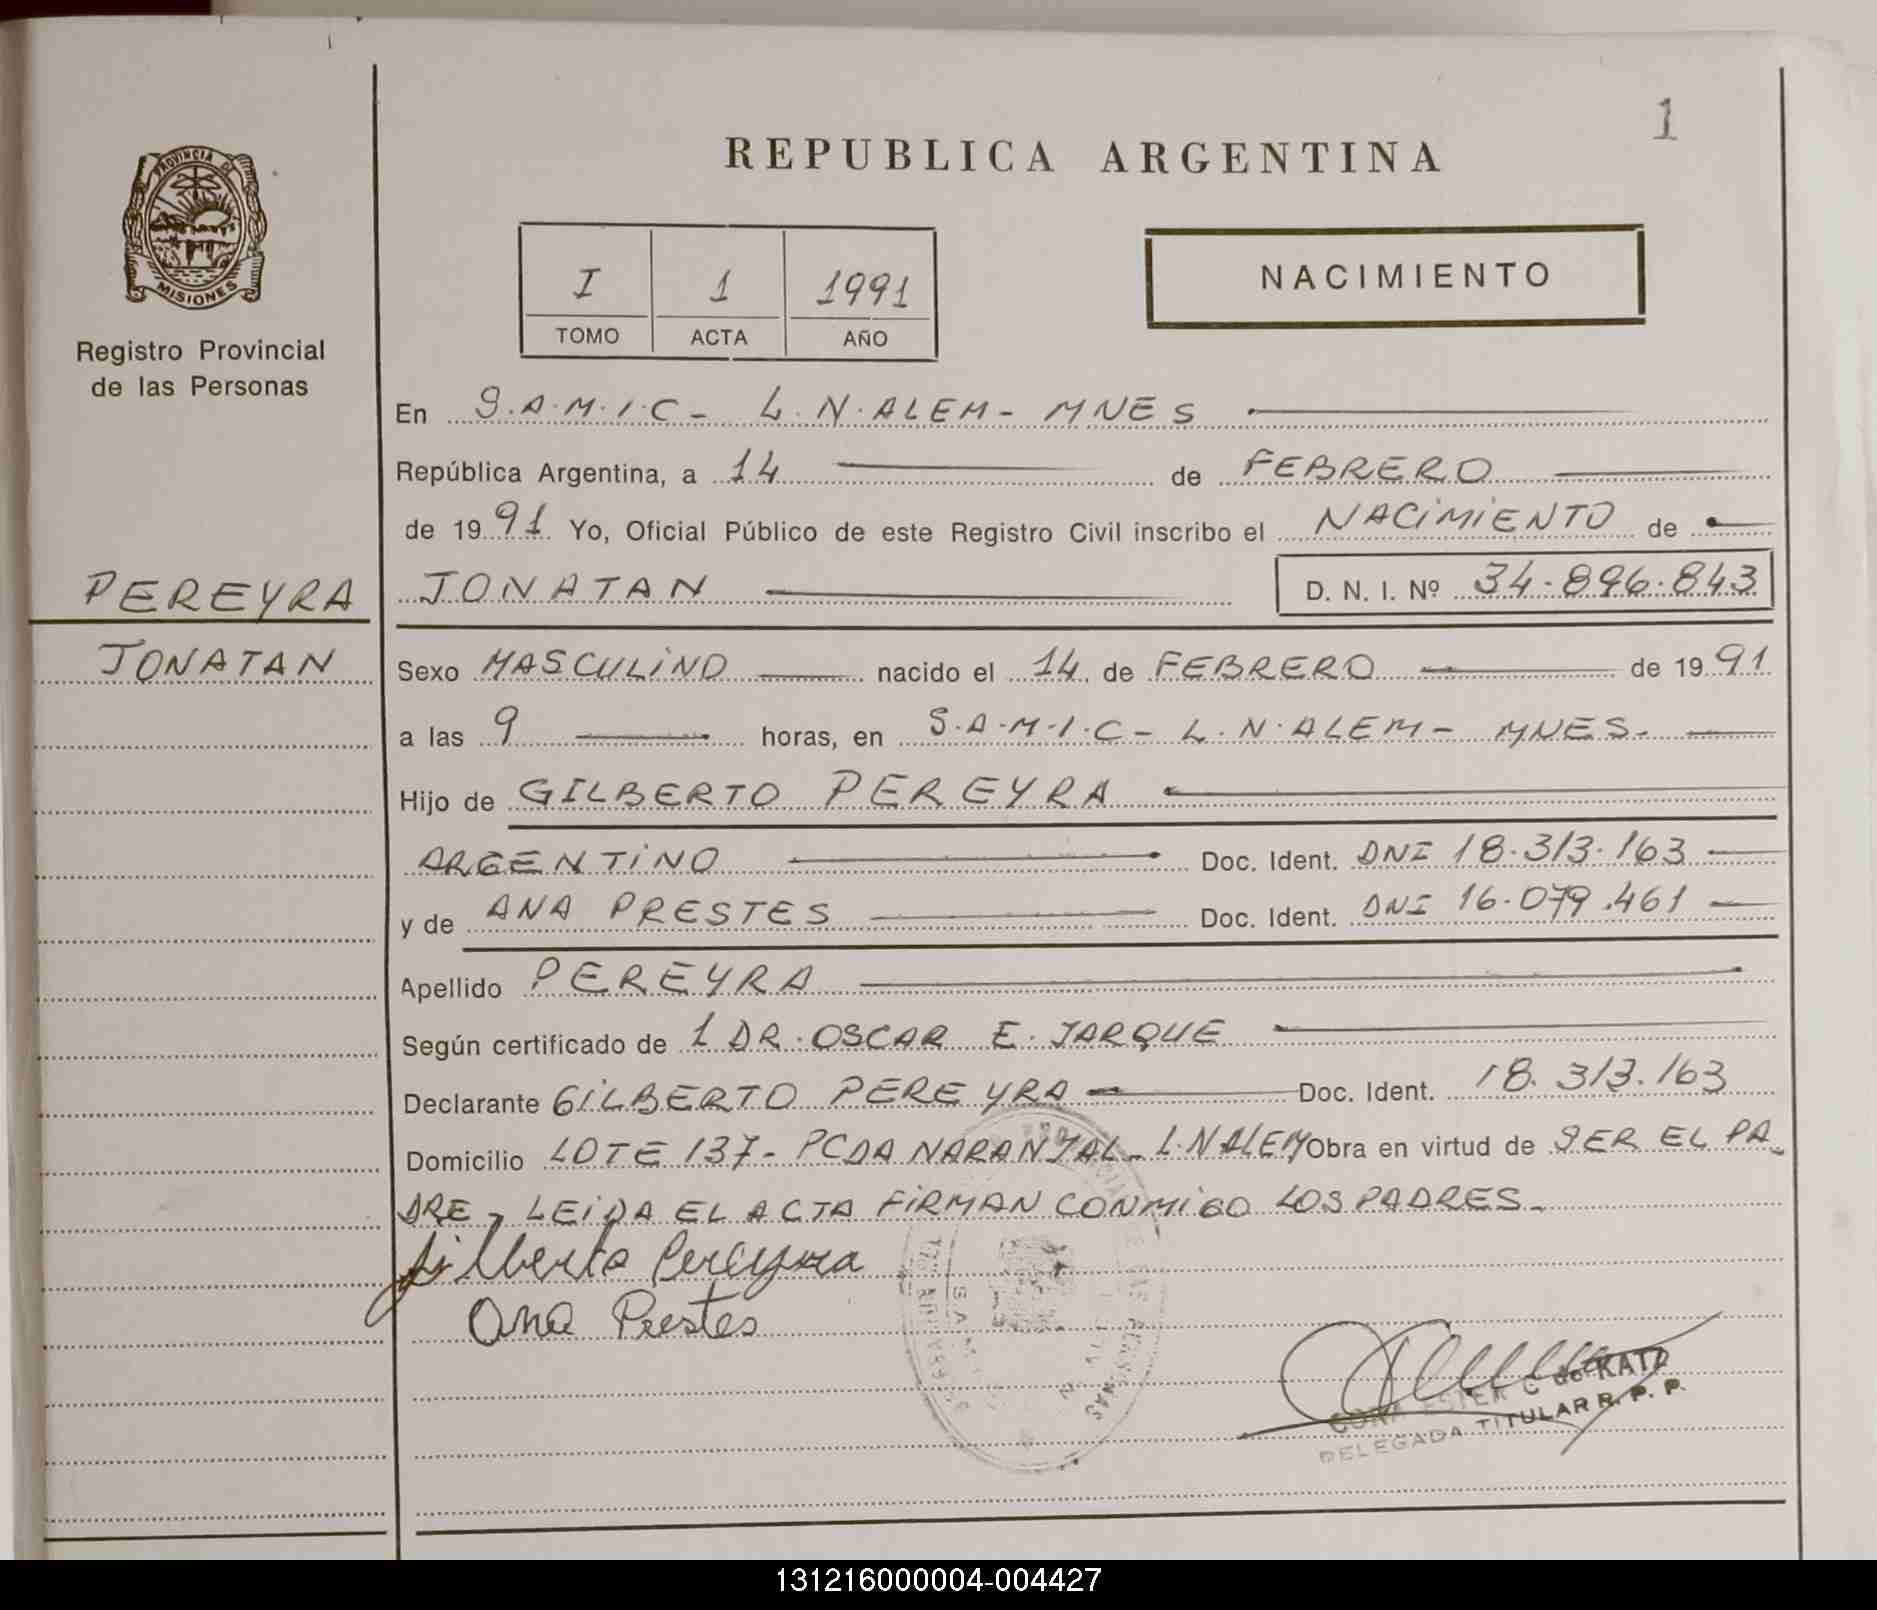 1
REPUBLICA ARGENTINA
PROVINCIA DE
MISIONES
Registro Provincial
de las Personas
I 1 1991
TOMO ACTA AÑO
NACIMIENTO
En S.A.M.I.C - L.N.ALEM - MNES
República Argentina, a 14 de FEBRERO
de 1991 Yo, Oficial Público de este Registro Civil inscribo el NACIMIENTO de
PEREYRA
JONATAN
JONATAN D. N. I. Nº 34.896.843
Sexo MASCULINO nacido el 14 de FEBRERO de 1991
a las 9 horas, en S.A.M.I.C - L.N.ALEM - MNES.
Hijo de GILBERTO PEREYRA
ARGENTINO Doc. Ident. DNI 18.313.163
y de ANA PRESTES Doc. Ident. DNI 16.079.461
Apellido PEREYRA
Según certificado de 1 DR. OSCAR E. JARQUE
Declarante GILBERTO PEREYRA Doc. Ident. 18.313.163
Domicilio LOTE 137 - PCDA NARANJAL - L.N ALEM Obra en virtud de SER EL PA-
DRE - LEIDA EL ACTA FIRMAN CONMIGO LOS PADRES.
Gilberto Pereyra
Ana Prestes
ESTER C de KATZ
DELEGADA TITULAR R. P. P.
131216000004-004427